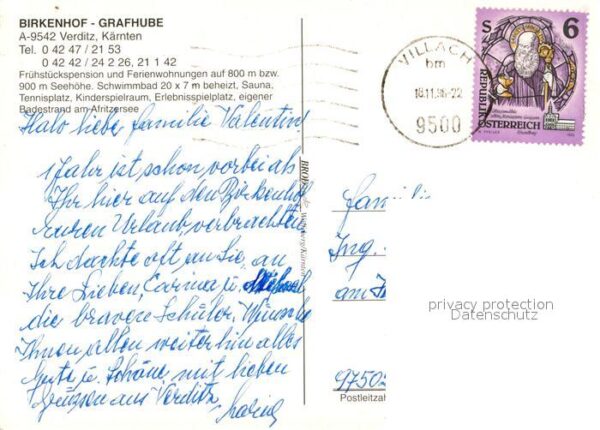 BIRKENHOF - GRAFHUBE
A-9542 Verditz, Kärnten
Tel. 0 42 47 / 21 53
0 42 42 / 24 2 26, 21 1 42
Frühstückspension und Ferienwohnungen auf 800 m bzw.
900 m Seehöhe. Schwimmbad 20 x 7 m beheizt, Sauna,
Tennisplatz, Kinderspielraum, Erlebnisspielplatz, eigener
Badestrand am Afritzersee
Halo liebe Familie Valentin!
1 Jahr ist schon vorbei als
Ihr hier auf den Birkenhof
euren Urlaub verbrachten
Ich dachte oft an Sie, an
Ihre Lieben, Carina u.
die braven Schüler. Wünsche
Ihnen allen weiterhin alles
Gute u. Schöne mit lieben
Grüssen aus Verditz
VILLACH
bm
18.11.96-22
9500
S 6
REPUBLIK
ÖSTERREICH
Famili
Ing.
am
privacy protection
Datenschutz
9750
Postleitzah